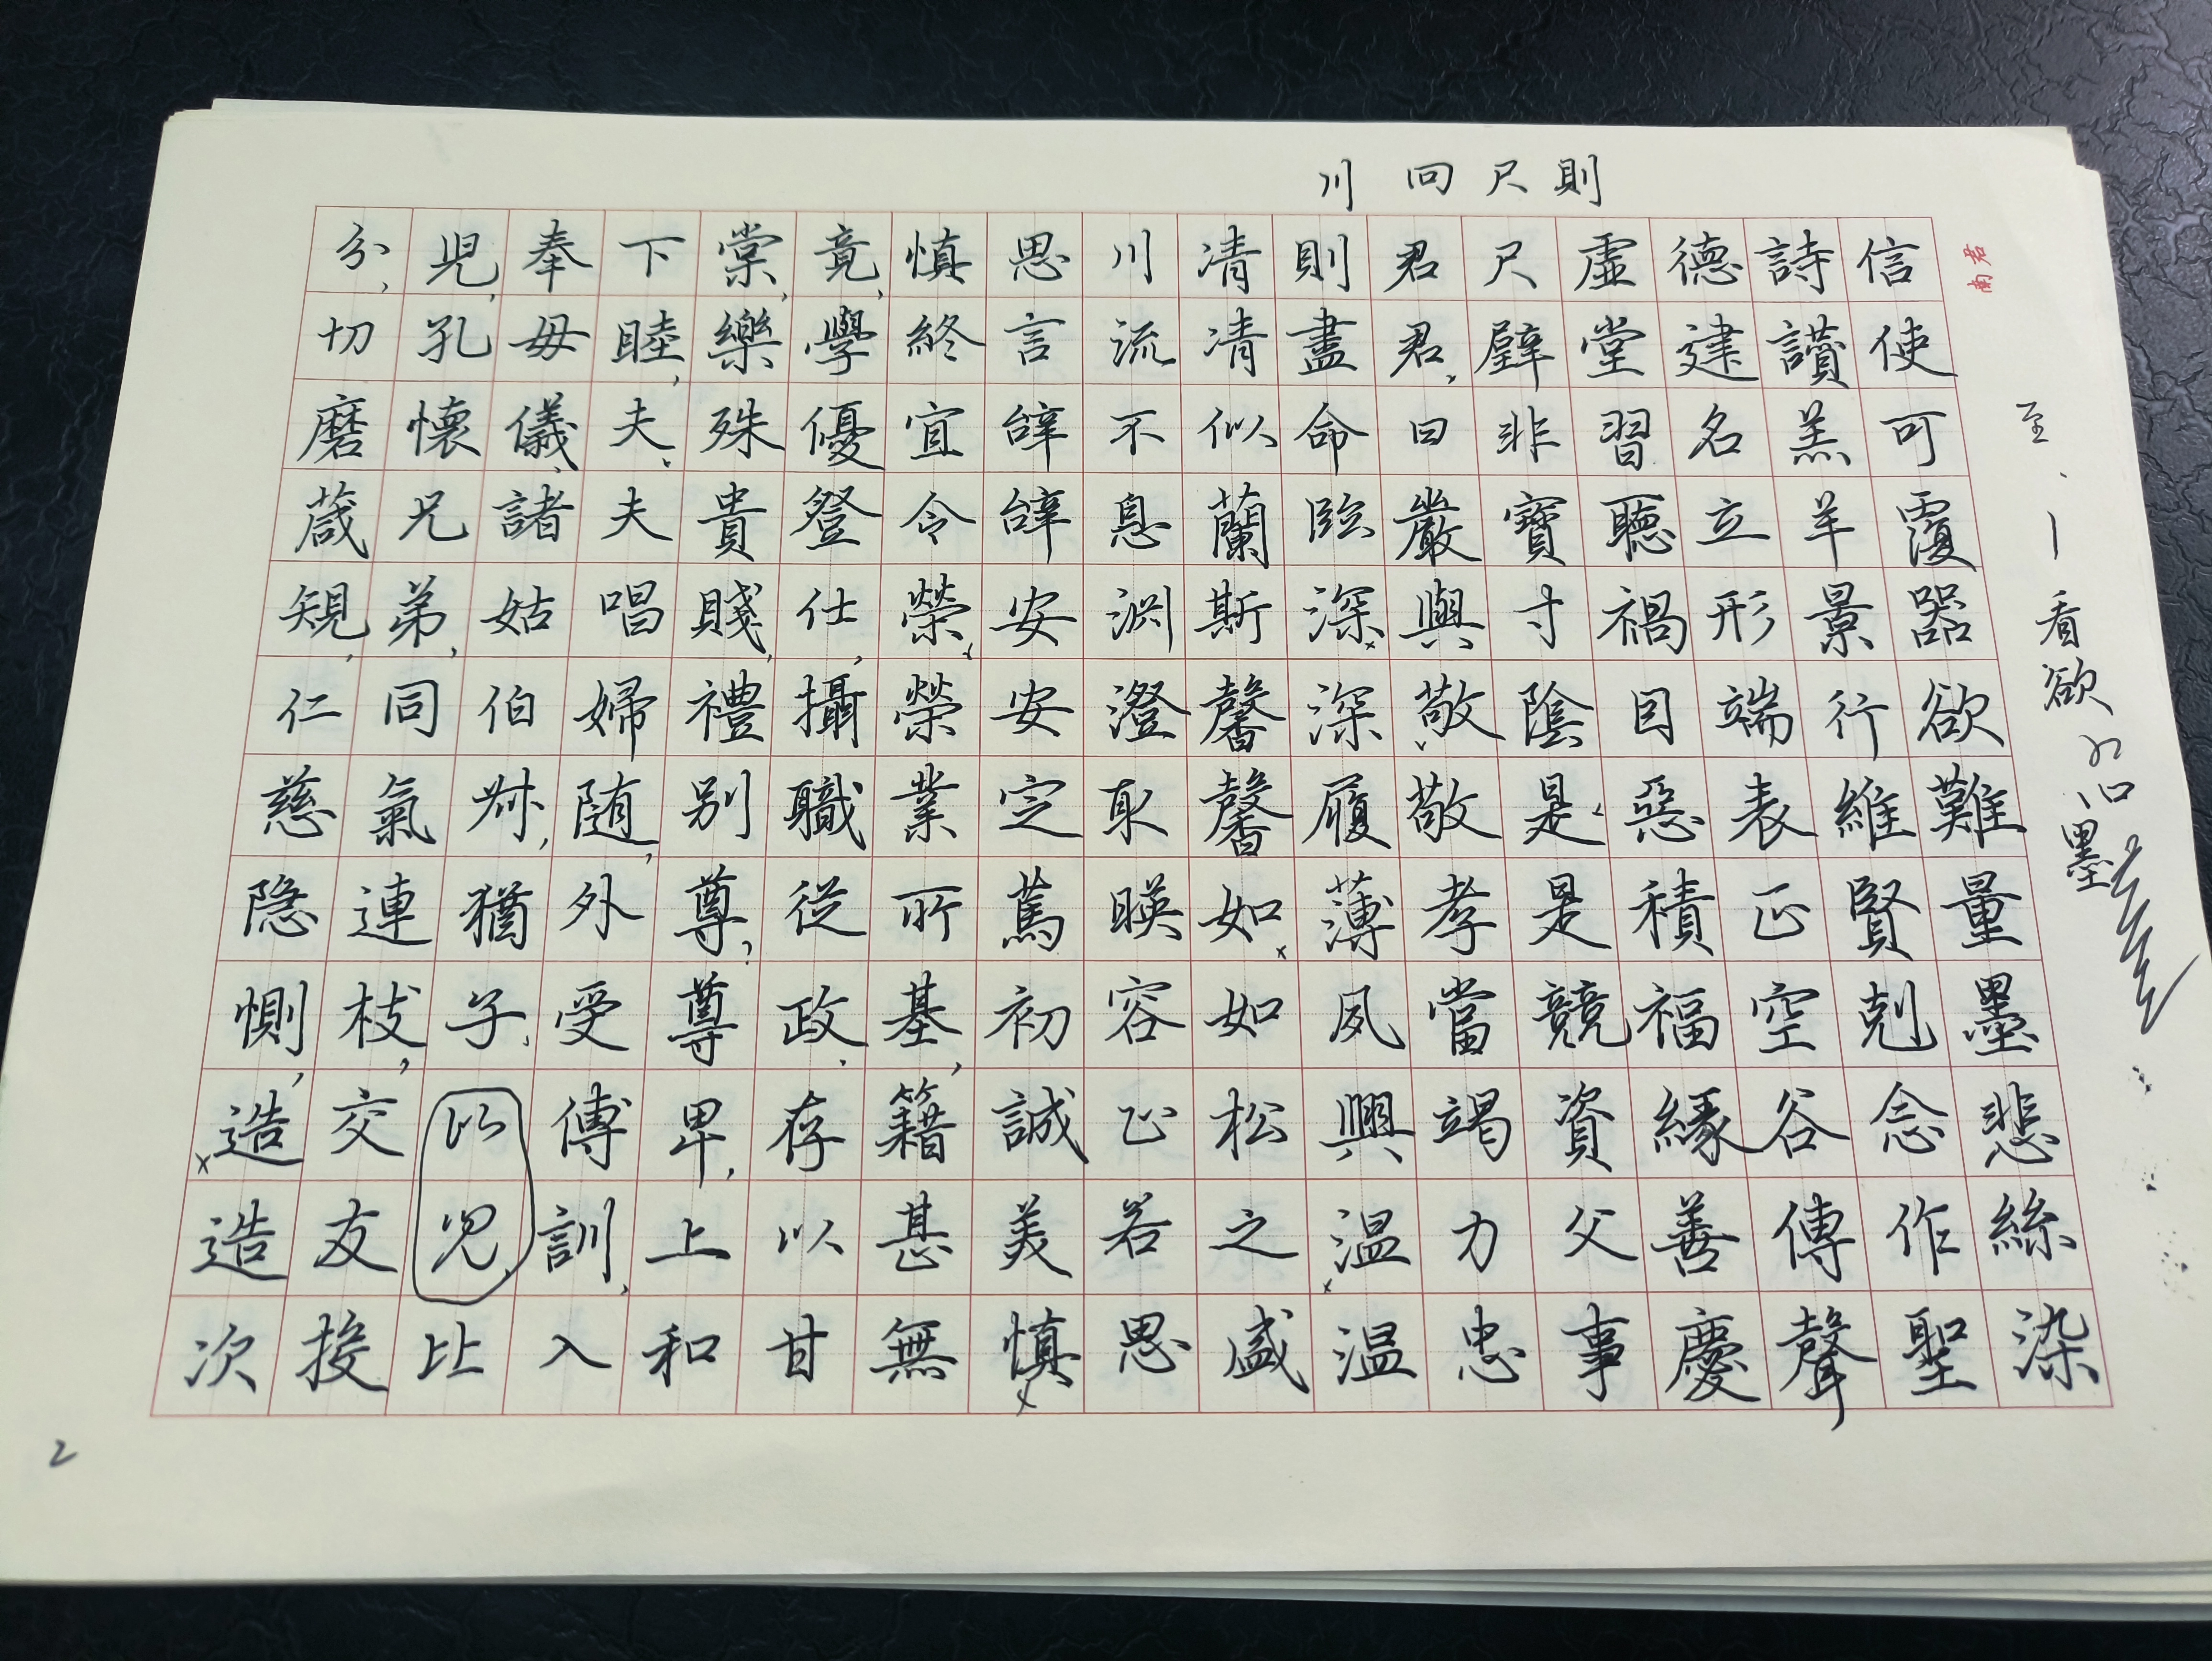 川回尺則
君南
至丶丨看欲
墨
信使可覆器欲難量墨悲絲染
詩讚羔羊景行維賢剋念作聖
德建名立形端表正空谷傳聲
虛堂習聽禍目惡積福緣善慶
尺璧非寶寸陰是是競資父事
君君曰嚴與敬敬孝當竭力忠
則盡命臨深深履薄夙興温温
凊凊似蘭斯馨馨如如松之盛
川流不息淵澄取暎容止若思
思言辝辝安安定篤初誠美慎
慎終宜令榮榮業所基籍甚無
竟學優登仕攝職從政存以甘
棠樂殊貴賤禮別尊尊卑上和
下睦夫夫唱婦随外受傅訓入
奉母儀諸姑伯叔猶子以兒比
兒孔懷兄弟同氣連枝交友接
分切磨葴規仁慈隐惻造造次
2